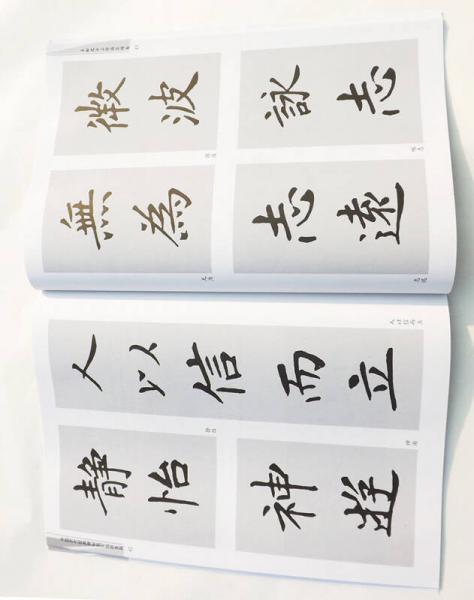 微波
詠志
無為
志遠
人以信而立
静怡
神遊